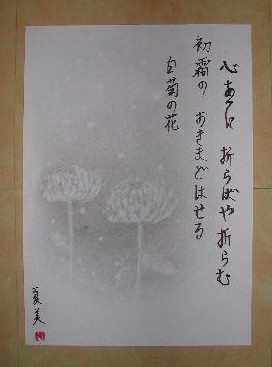 心あてに 折らばや折らむ
初霜の おきまどはせる
白菊の花